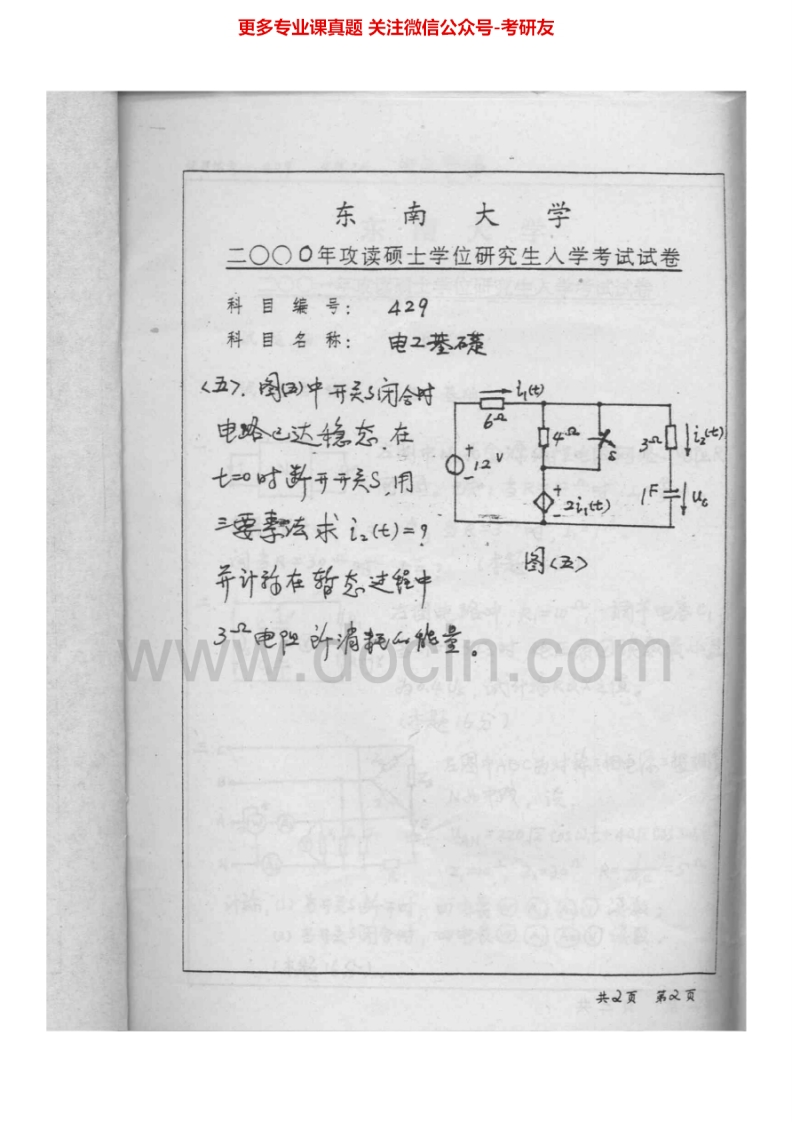 更多专业课真题 关注微信公众号-考研友
东南大学
二〇〇〇年攻读硕士学位研究生入学考试试卷
科目编号: 429
科目名称: 电工基礎
<五>. 图(五)中开关S闭合时
电路已达稳态,在
t=0时断开开关S,用
三要素法求 i₂(t)=?
并计祘在暂态过程中
3Ω电阻所消耗的能量。
i₁(t)
6Ω
4Ω
S
3Ω
i₂(t)
+
12V
-
+
2i₁(t)
-
1F
Uc
图<五>
www.docin.com
共2页 第2页